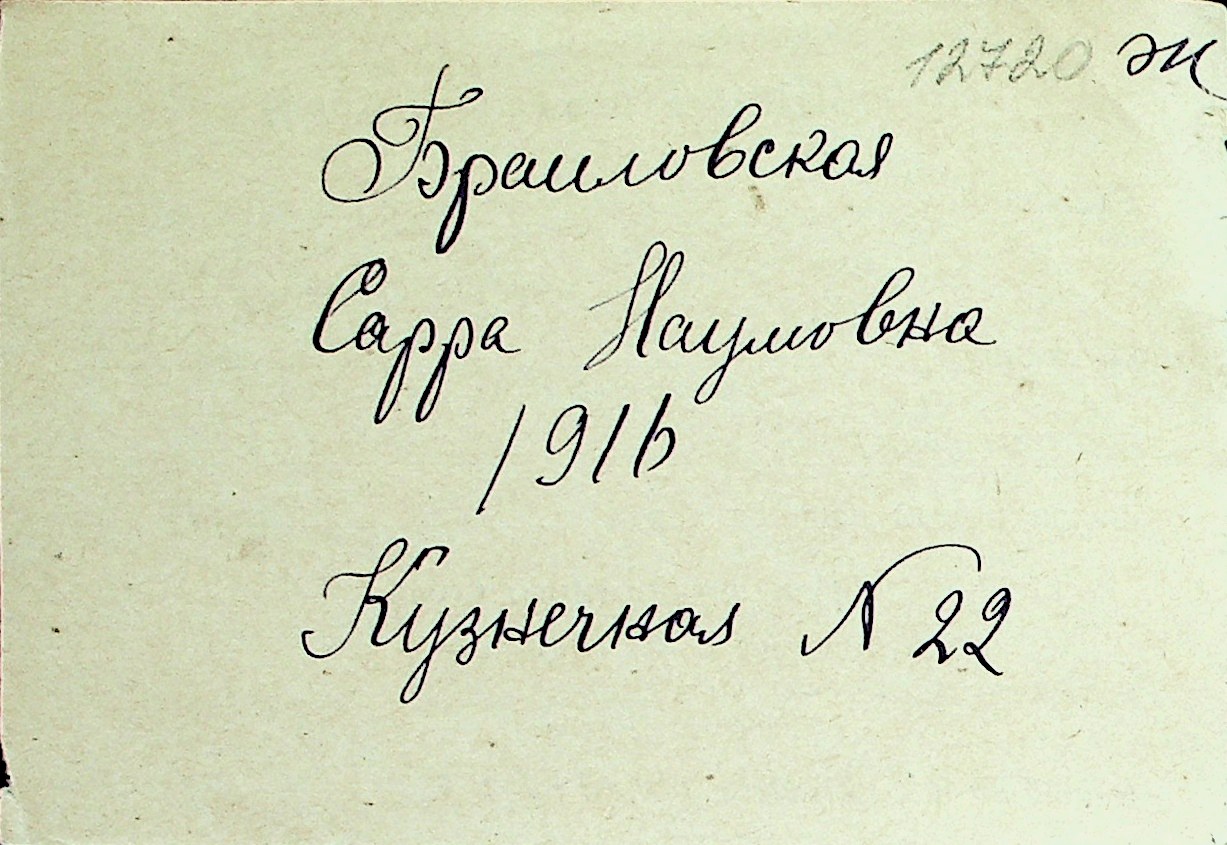 12720 Ж
Браиловская
Сарра Наумовна
1916
Кузнечная N 22